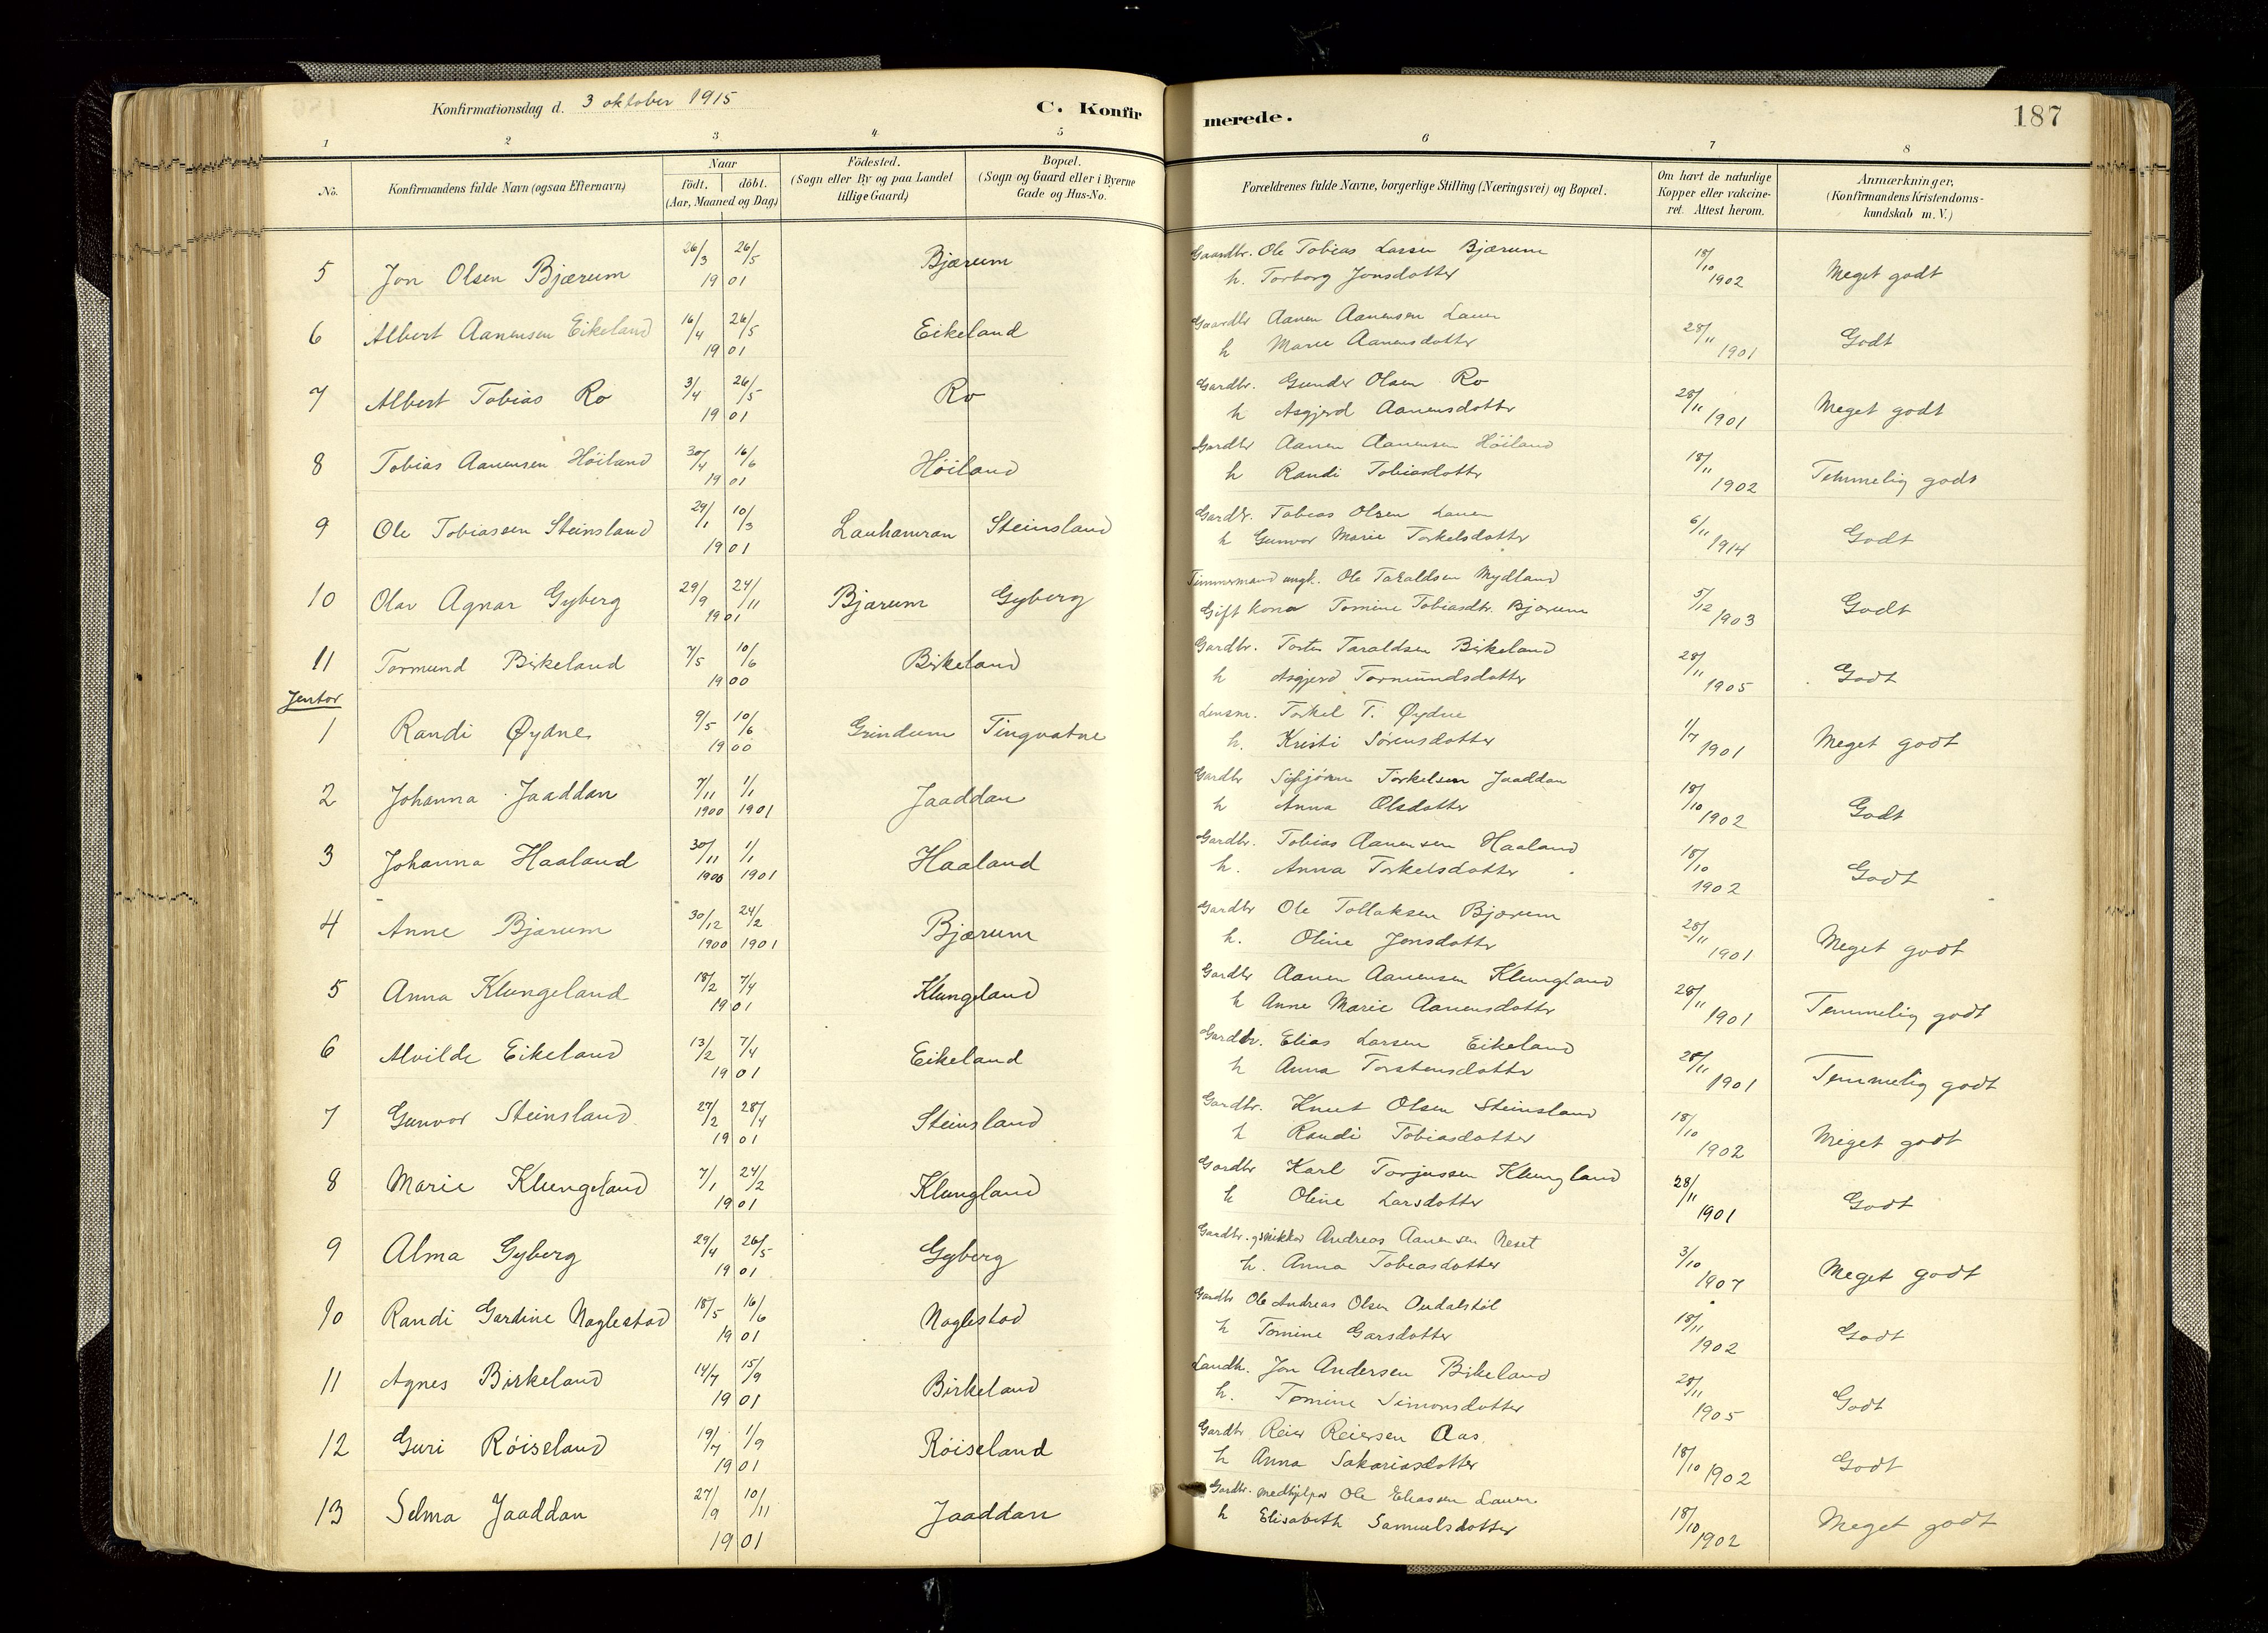 Konfirmationsdag d. 3 oktober 1915 C. Konfirmerede. 187
1 2 3 4 5 6 7 8
No. Konfirmandens fulde Navn (ogsaa Efternavn) Naar födt. döbt. (Aar, Maaned og Dag) Födested. (Sogn eller By og paa Landet tillige Gaard) Bopæl. (Sogn og Gaard eller i Byerne Gade og Hus-No. Forældrenes fulde Navne, borgerlige Stilling (Næringsvei) og Bopæl. Om havt de naturlige Kopper eller vakcineret. Attest herom. Anmærkninger, (Konfirmandens Kristendomskundskab m. V.)
5 Jon Olsen Bjærum 26/3 26/5 1901 Bjærum Gaardbr. Ole Tobias Larsen Bjærum
h. Torborg Jonsdotter 18/10 1902 Meget godt
6 Albert Aanensen Eikeland 16/4 26/5 1901 Eikeland Gaardbr Aanen Aanensen Lauen
h Marie Aanensdotter 28/11 1901 Godt
7 Albert Tobias Ro 3/4 26/5 1901 Ro Gardbr. Gunder Olsen Ro
h Asgjerd Aanensdotter 28/11 1901 Meget godt
8 Tobias Aanensen Höiland 30/4 16/6 1901 Höiland Gardbr Aanen Aanensen Höiland
h Randi Tobiasdotter 18/11 1902 Temmelig godt
9 Ole Tobiassen Steinsland 29/1 10/3 1901 Lauhamran Steinsland Gardbr. Tobias Olsen Lauen
h Gunvor Marie Torkelsdotter 6/11 1914 Godt
10 Olav Agnar Gyberg 29/9 24/11 1901 Bjærum Gyberg Timmermand ungk. Ole Taraldsen Mydland
Gift kona Tomine Tobiasdtr. Bjærum 5/12 1903 Godt
11 Tormund Birkeland 7/5 10/6 1900 Birkeland Gardbr. Torten Taraldsen Birkeland
h Asgjerd Tormundsdotter 28/11 1905 Godt
Jentor
1 Randi Øydne 9/5 10/6 1900 Grindum Tingvatne Lensm. Torkel T. Øydne
h. Kristi Sörensdotter 1/7 1901 Meget godt
2 Johanna Jaaddan 7/11 1900 1/1 1901 Jaaddan Gardbr Sigbjörn Torkelsen Jaaddan
h Anna Olsdotter 18/10 1902 Godt
3 Johanna Haaland 30/11 1900 1/1 1901 Haaland Gardbr. Tobias Aanensen Haaland
h. Anna Torkelsdotter 18/10 1902 Godt
4 Anne Bjærum 30/12 1900 24/2 1901 Bjærum Gardbr Ole Tollaksen Bjærum
h. Oline Jonsdotter 28/11 1901 Meget godt
5 Anna Klungeland 18/2 7/4 1901 Klungeland Gardbr Aanen Aanensen Klungland
h Anne Marie Aanensdotter 28/11 1901 Temmelig godt
6 Alvilde Eikeland 13/2 7/4 1901 Eikeland Gardbr. Elias Larsen Eikeland
h Anna Torstensdotter 28/11 1901 Temmelig godt
7 Gunvor Steinsland 27/2 28/4 1901 Steinsland Gardbr. Knut Olsen Steinsland
h Randi Tobiasdotter 18/10 1902 Meget godt
8 Marie Klungeland 7/1 24/2 1901 Klungland Gardbr Karl Torjussen Klungland
h Oline Larsdotter 28/11 1901 Godt
9 Alma Gyberg 29/4 26/5 1901 Gyberg Gardbr. og snikkar Andreas Aanensen Neset
h. Anna Tobiasdotter 3/10 1907 Meget godt
10 Randi Gardine Naglestad 18/5 16/6 1901 Naglestad Gardbr Ole Andreas Olsen Audalstöl
h Tomine Garsdotter 18/11 1902 Godt
11 Agnes Birkeland 14/7 15/9 1901 Birkeland Landh. Jon Andersen Bikeland
h. Tomine Simonsdotter 28/11 1905 Godt
12 Guri Röiseland 19/7 1/9 1901 Röiseland Gardbr Reier Reiersen Aas.
h Anna Sakariasdotter 18/10 1902 Godt
13 Selma Jaaddan 27/9 10/11 1901 Jaaddan Gardbr. medhjelpar Ole Eliassen Lauen
h Elisabeth Samuelsdotter 18/10 1902 Meget godt